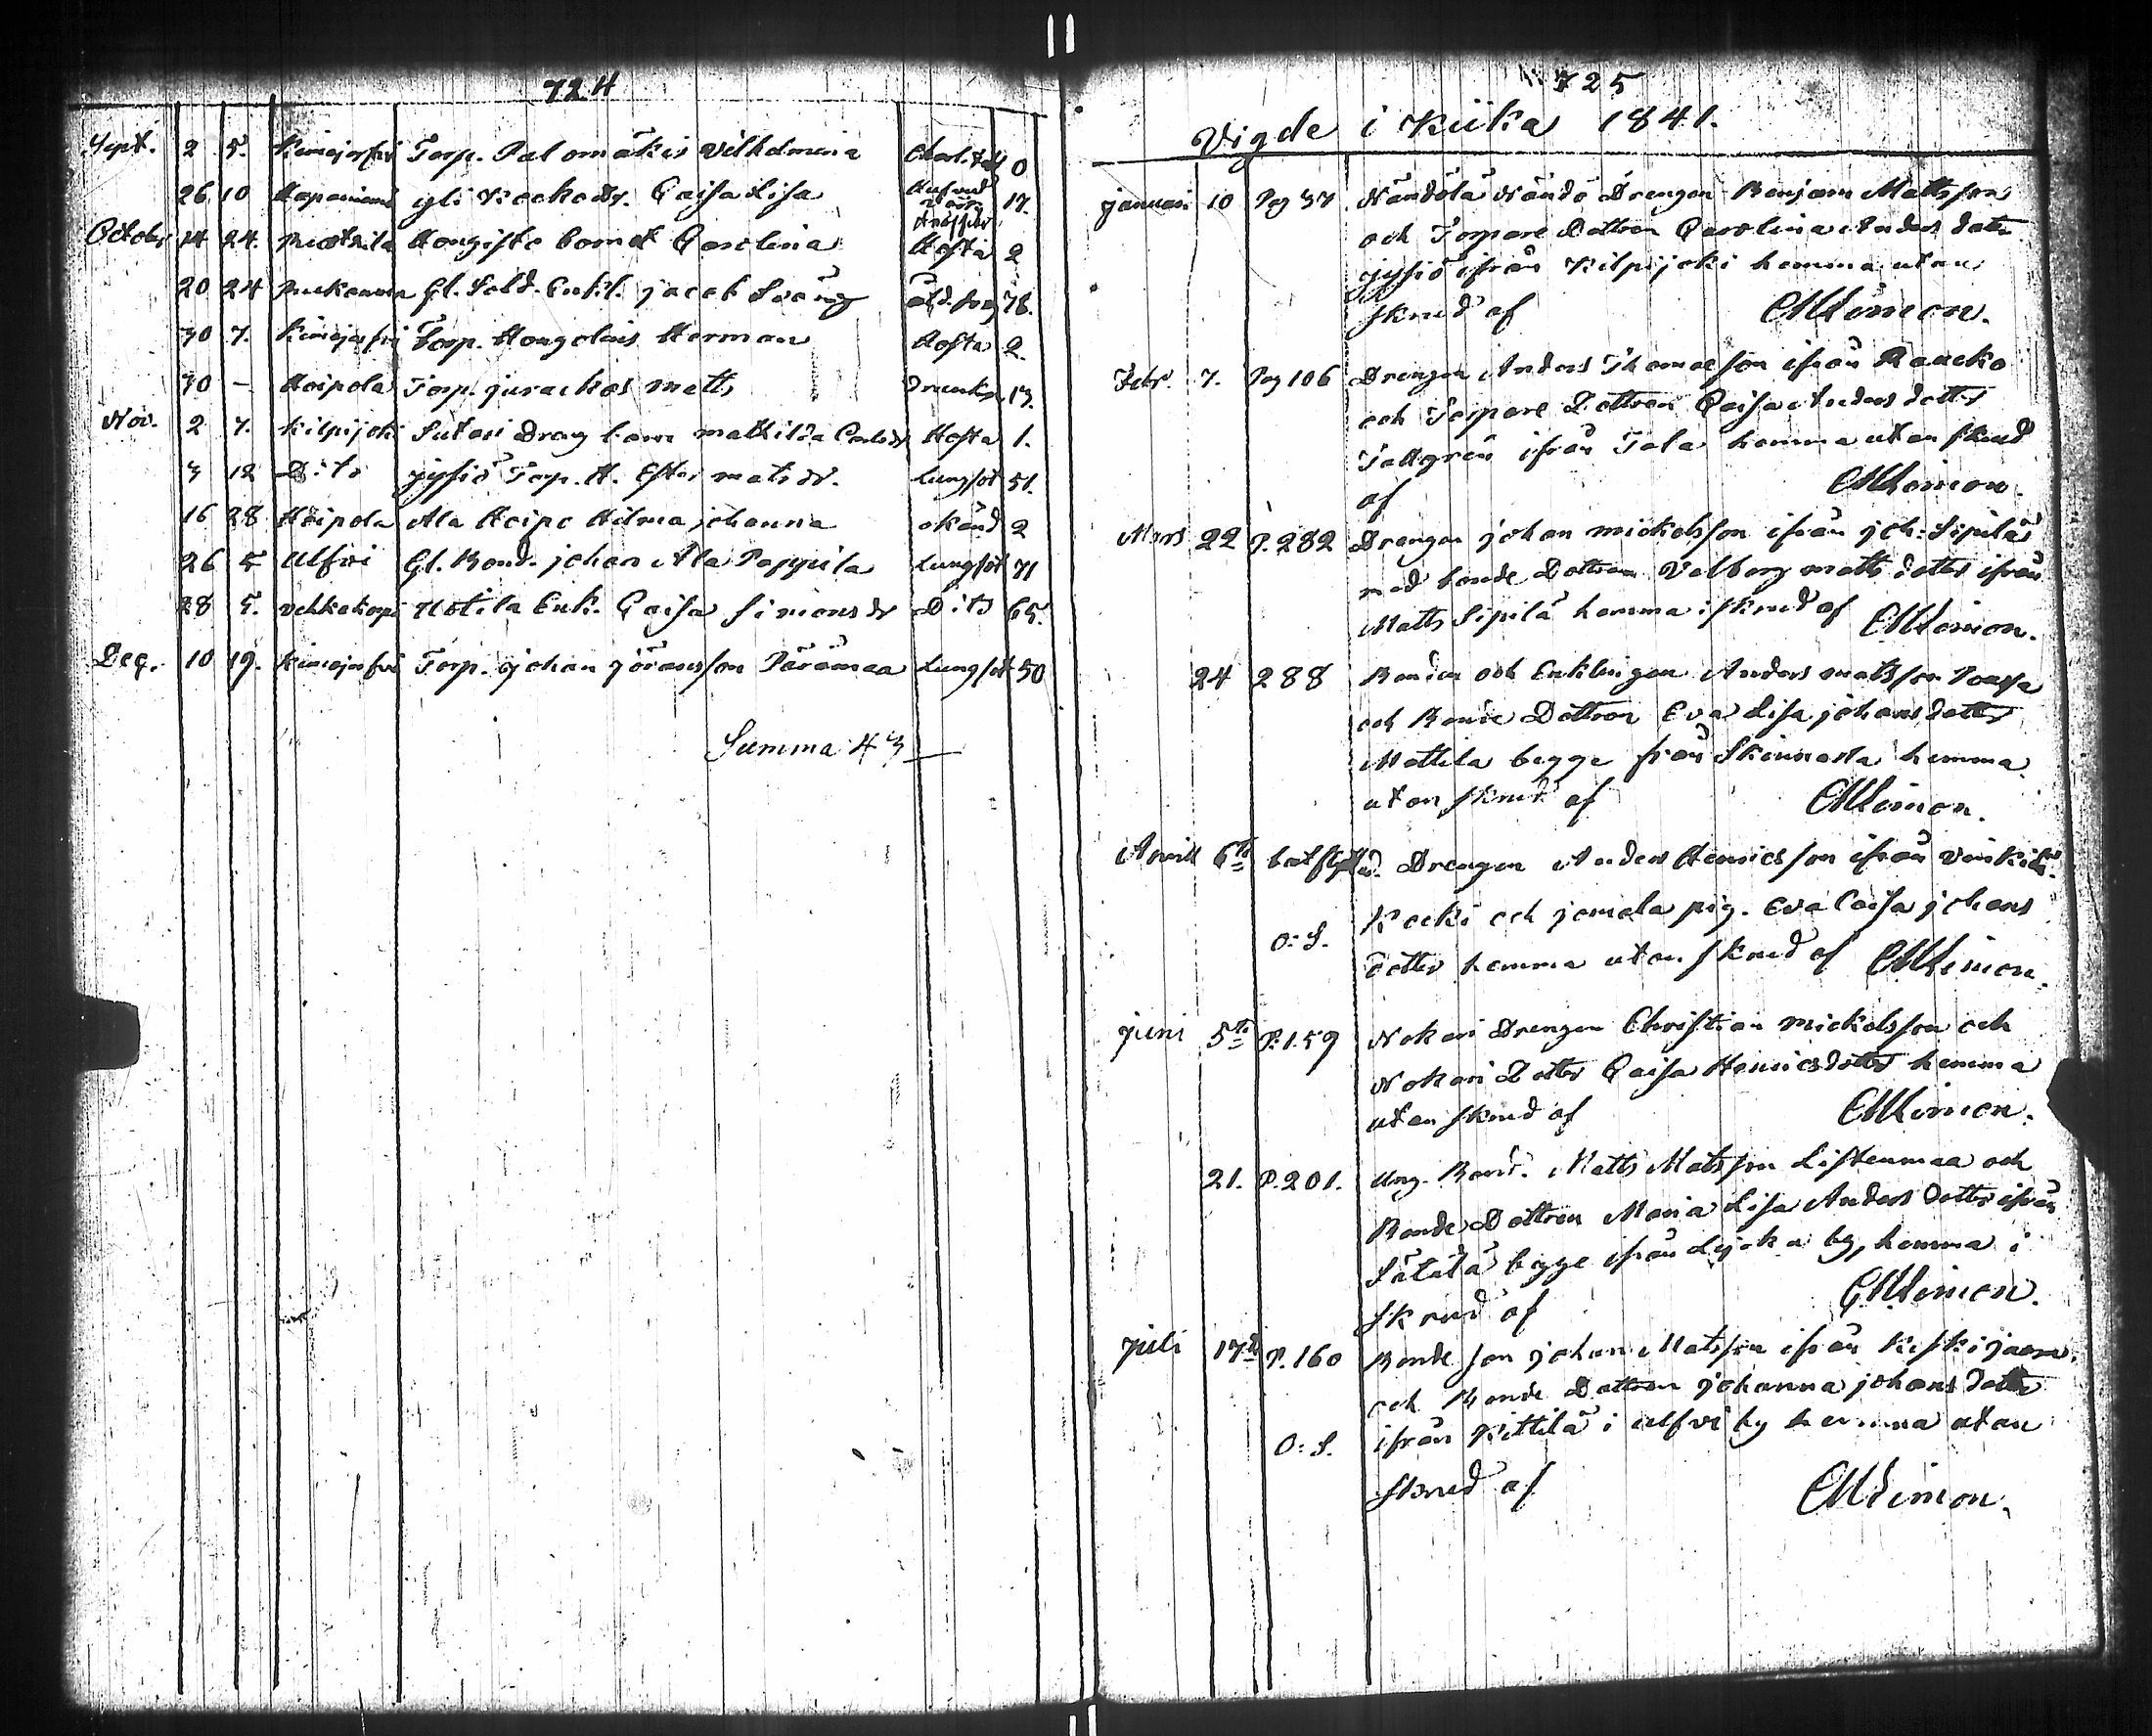 724
Sept. 2 5. Kimojerfvi Torp. Palomäkis Vilhelmina 0
26 10 Haponiemi yli Kockos dr. Caisa Lisa 17.
October 14 24. Hongisto barnet Carolina Hosta 2
20 24 Gl. Sold. Enkl. jacob Sväng åld.svag 78.
30 7. Kimojerfvi Torp. Hongolais Herman Hosta 2.
30 – Hoipola Torp. jurackos Matts Drunkn. 13.
Nov. 2 7. Kilpijoki Sutari Dreng barn Mathilda Carlsdr Hosta 1.
3 12 Dito jyssiö Torp. H. Ester Matsdr. Lungsot 51.
16 28 Hoipola Ala Hoipo Hilma johanna okänd 2
26 5 Ulfvi Gl. Bond. johan Ala Pappila Lungsot 71
28 5. Vehkakopi Uotila Enk. Caisa Simonsdr Dito 65.
Dec. 10 19. Kimojerfvi Torp. johan jöransson Perämaa Lungsot 50
Summa 43
725
Vigde i Kiika 1841.
januari 10 Pag 37 Nändölä Nändö Drengen Benjam Mattsson
och Torpare Dottren Carolina Anders dotter
jyssiö ifrån Kilpijoki hemma utan
skrud af CMLimon.
Febr. 7. Pag 106 Drengen Anders Thomasson ifrån Raucko
och Torpare Dottren Caisa Anders dotter
Tallgren ifrån Tala hemma utan skrud
af CMLimon.
Mars 22 P. 282 Drengen johan Mickelsson ifrån joh: Sipilä
med bonde Dottren Valborg Matts dotter ifrån
Matts Sipilä hemma i skrud af CMLimon.
24 288 Bonden och Enklingen Anders Matsson
och Bonde Dottren Eva Lisa johans dotter
Mattila begge från Skinnarla hemma
utan skrud af CMLimon.
April 6te Drengen Anders Henricsson ifrån
Kocki och jamala pig. Eva Caisa johans
O: S. dotter hemma utan skrud af CMLimon.
juni 5te P. 159 Nokari Drengen Christian Mickelsson och
Nokari Dotter Caisa Henricsdotter hemma
utan skrud af CMLimon.
21. P. 201. Ung. Bond. Matts Matsson Liskenmaa och
Bonde Dottren Maria Lisa Anders dotter ifrån
Sätilä begge ifrån by, hemma i
skrud af CMLimon.
juli 17de P. 160 Bonde son johan Matsson ifrån Keskijaara
och Bonde Dottren johanna johans dotter
O: S. ifrån Kittilä i Ulfvi by hemma utan
skrud af CMLimon.